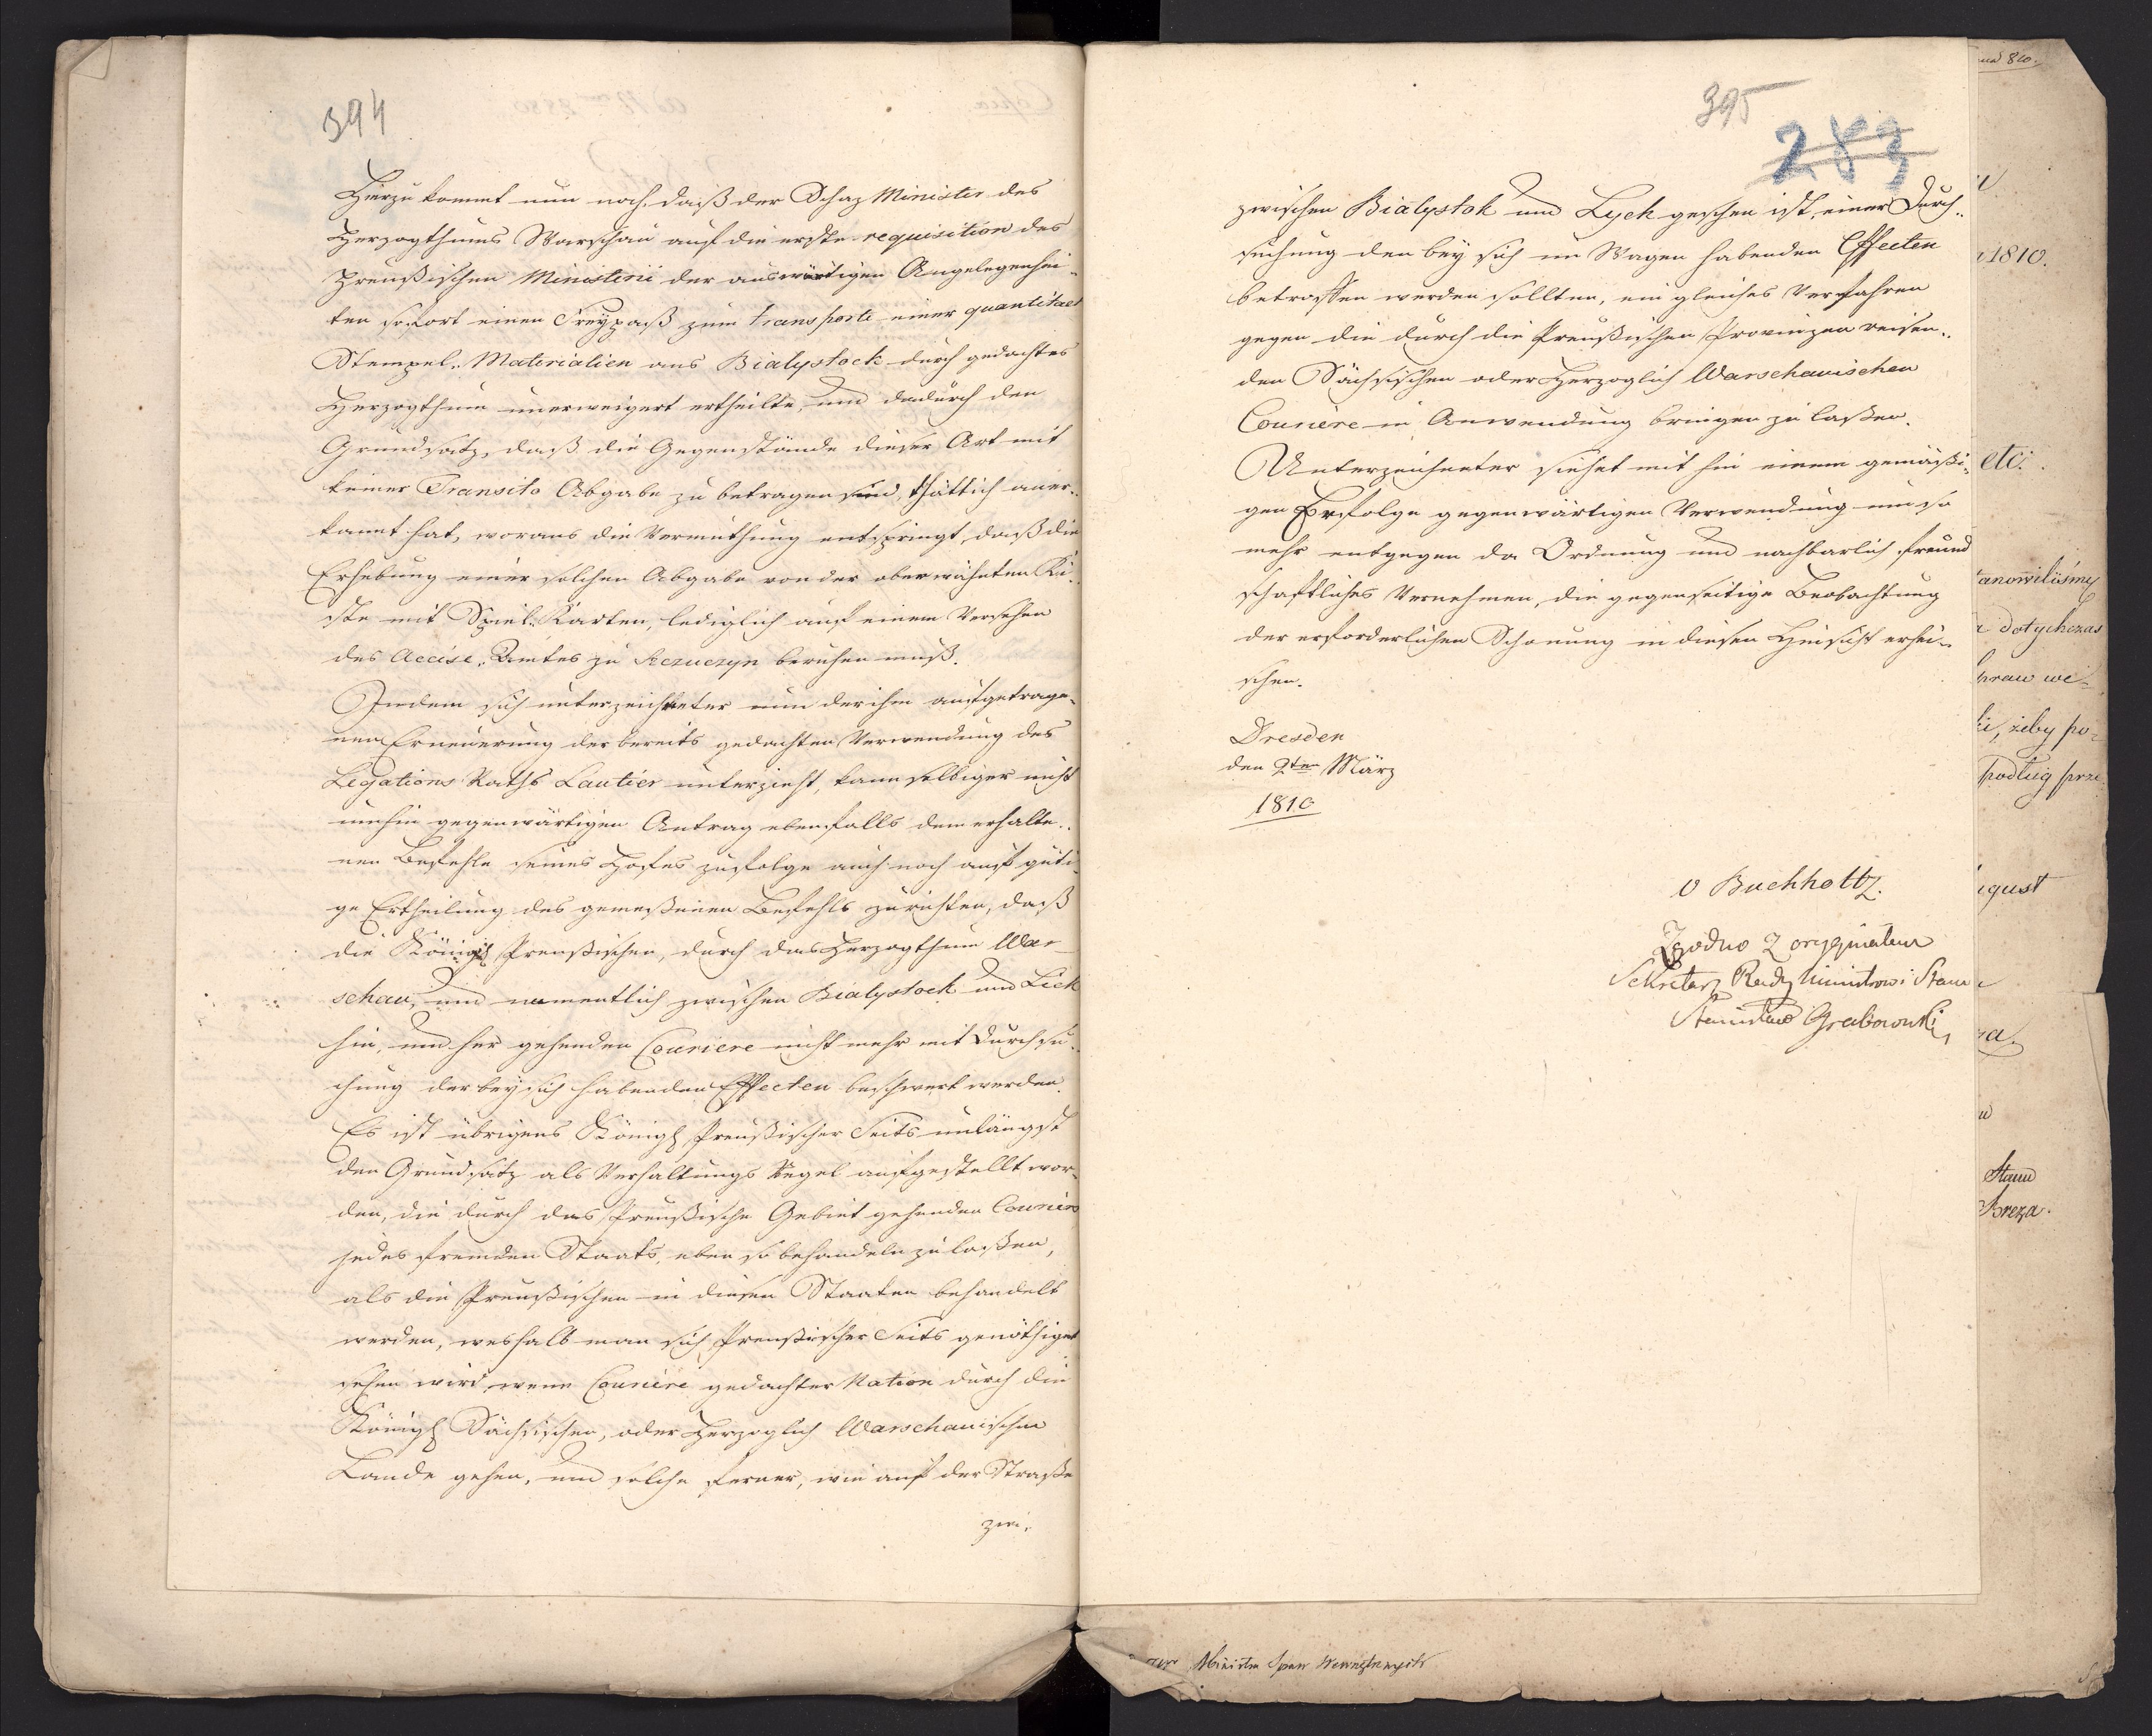 394
Hierzu kommt nun noch, daß der Schaz Minister des
Herzogthums Warschau auf die erste requisition des
Preußischen Ministerii der auswärtigen Angelegenhei-
ten sofort einen Freypaß zum Transporte einer quantitaet
Stempel-Materialien aus Bialystock durch gedachtes
Herzogthum unerweigert ertheilte, und dadurch den
Grundsatz, daß die Gegenstände dieser Art mit
keiner Transito Abgabe zu betragen sind, thätlich aner-
kannt hat, woraus die Vermuthung entspringt, daß die
Erhebung einer solchen Abgabe von der oberwähnten Ki-
ste mit Spiel-Karten, lediglich auf einem Versehen
des Accise-Amtes zu Szczuczyn beruhen muß.
Indem sich unterzeichneter nun der ihm aufgetrage-
nen Erneuerung der bereits gedachten Verwendung des
Legations Raths Lautier unterzieht, kann selbiger nicht
umhin gegenwärtigen Antrag ebenfalls dem erhalte-
nen Befehle seines Hofes zufolge auch noch auf güti-
ge Ertheilung des gemeßenen Befehls zu richten, daß
die Königl Preußischen, durch das Herzogthum War-
schau, und namentlich zwischen Bialystock und Lick
hin, und her gehenden Couriere nicht mehr mit Durchsu-
chung der bey sich habenden Effecten beschwert werden.
Es ist übrigens Königl Preußischer Seits unlängst
der Grundsatz als Verhaltungs Regel aufgestellt wor-
den, die durch das Preußische Gebiet gehenden Couriere
jedes fremden Staats, eben so behandeln zu laßen,
als die Preußischen in diesen Staaten behandelt
werden, weshalb man sich Preußischer Seits genöthiget
sehen wird, wenn Couriere gedachter Nation durch die
Königl Sächsischen, oder Herzoglich Warschauischen
Lande gehen, und solche ferner, wie auf der Straße
zwi-
395
283
zwischen Bialystok und Lyck geschehen ist, einer Durch-
suchung der bey sich im Wagen habenden Effecten
betroffen werden sollten, ein gleiches Verfahren
gegen die durch die Preußischen Provinzen reisen-
den Sächsischen oder Herzoglich Warschauischen
Couriere in Anwendung bringen zu laßen.
Unterzeichneter siehet mit hin einem gemäßi-
gen Erfolge gegenwärtigen Verwendung um so
mehr entgegen da Ordnung und nachbarlich freund
schaftliches Vernehmen, die gegenseitige Beobachtung
der erforderlichen Schonung in dieser Hinsicht erhei-
schen.
Dresden
den 2ten März
1810
v Buchholtz.
Zgodno z oryginałem
Sekretarz Rady Ministrow i Stanu
Stanisław Grabowski
810.
1810.
etc:
tanowiliśmy
dotychczas
praw we-
ki, żeby po-
podług prze
igust
Stanu
Breza.
Ministra Spraw Wewnętrznych